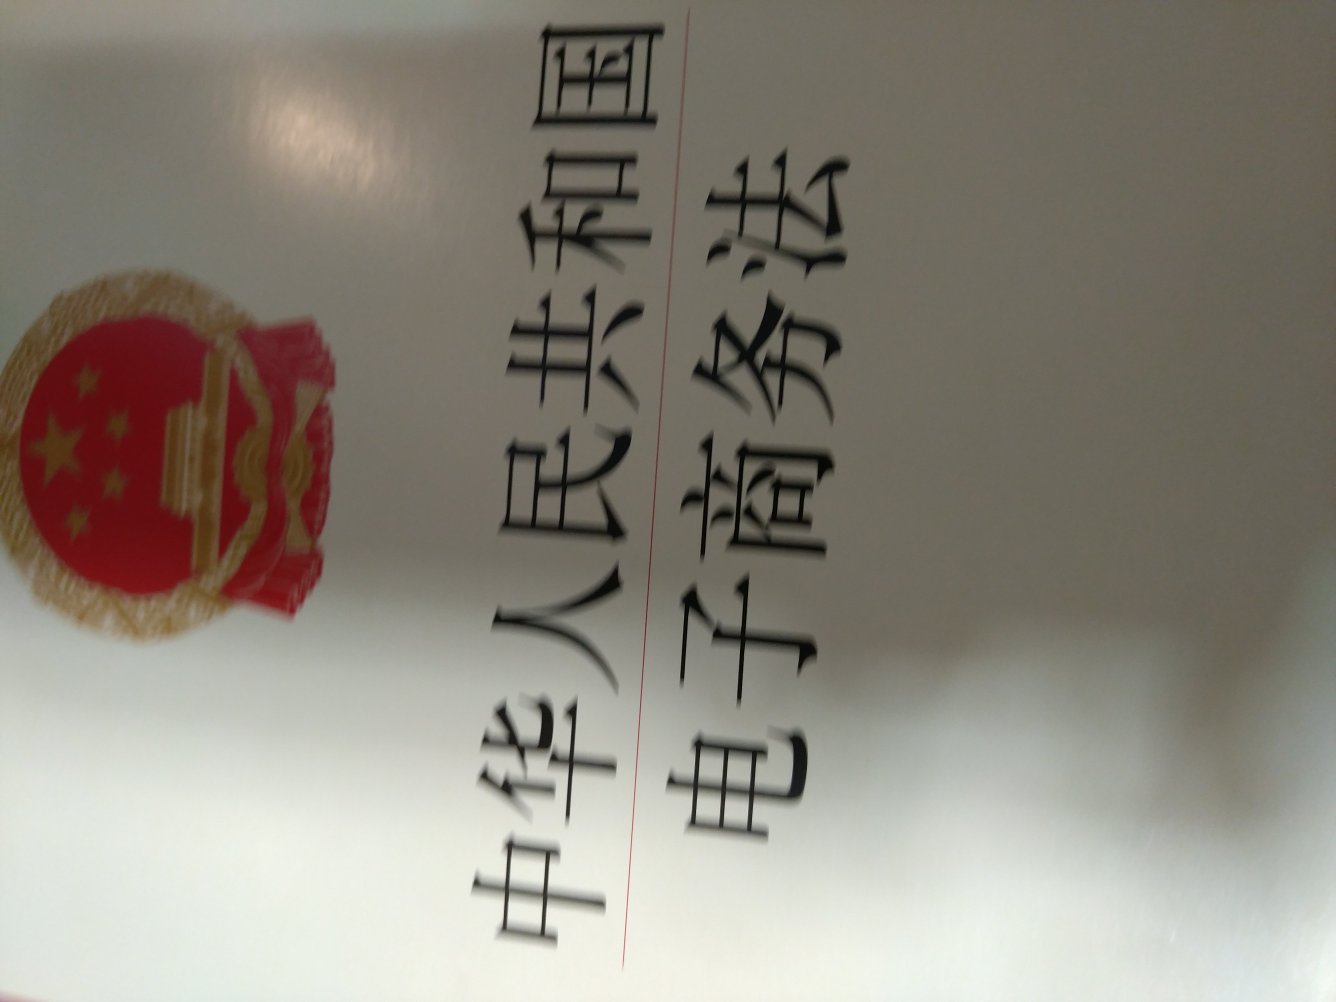 中华人民共和国
电子商务法